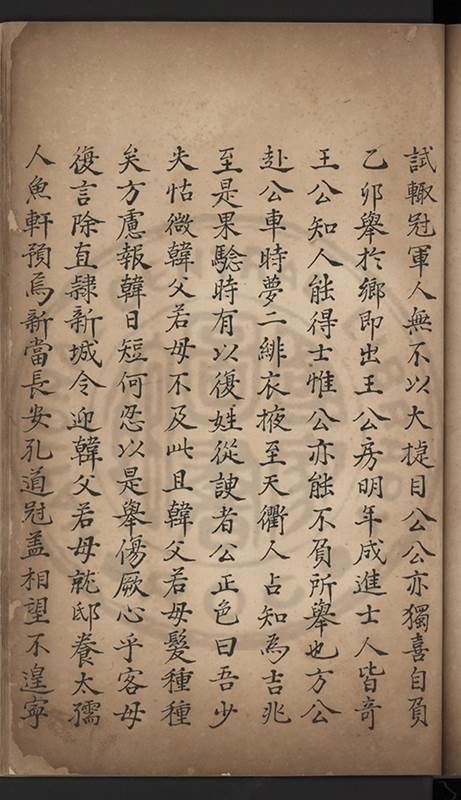 試輙冠軍人無不以大㨗目公公亦獨喜自負
乙夘舉於鄉即出王公房明年成進士人皆竒
王公知人能得士惟公亦能不負所舉也方公
赴公車時夢二緋衣掖至天衢人占知為吉兆
至是果騐時有以復姓從諛者公正色曰吾少
失怙微韓父若母不及此且韓父若母髮種種
矣方慮報韓日短何忍以是舉傷厥心乎客毋
復言除直隷新城令迎韓父若母就邸養太孺
人魚軒預焉新當長安孔道冠盖相望不遑寧